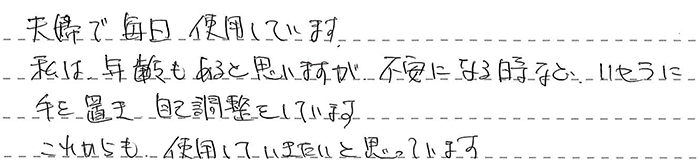 夫婦で毎日使用しています。
私は年齢もあると思いますが不安になる時など、いセラに
手を置き自己調整をしています
これからも使用していきたいと思っています